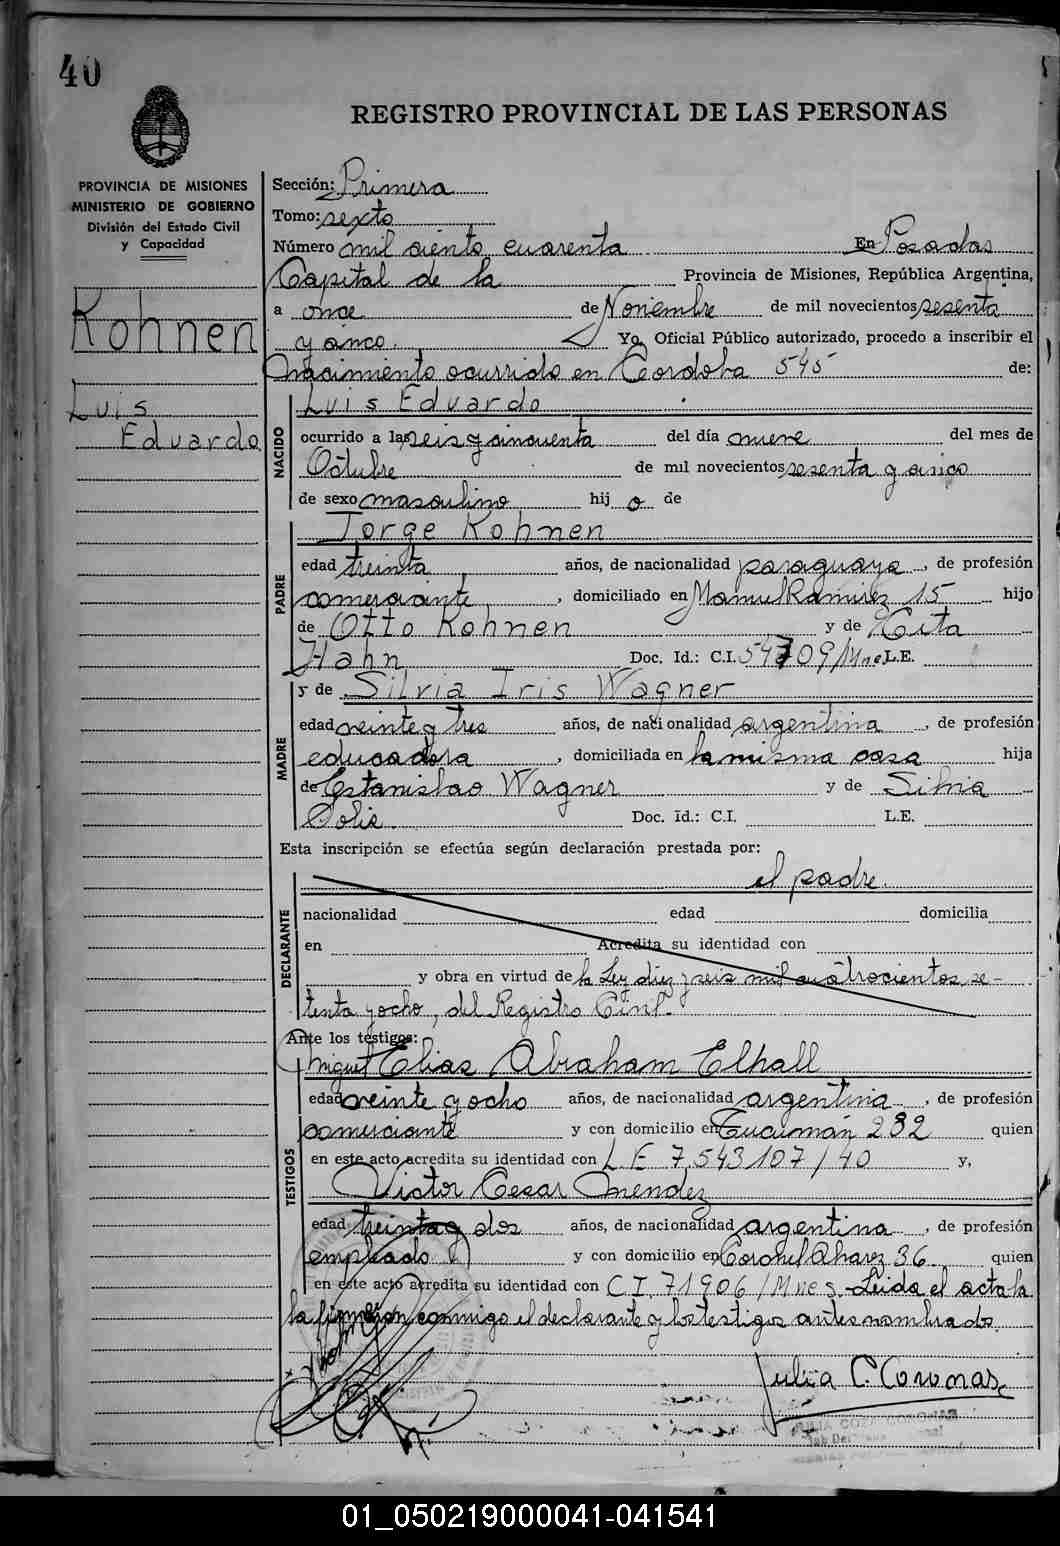 40
REGISTRO PROVINCIAL DE LAS PERSONAS
PROVINCIA DE MISIONES
MINISTERIO DE GOBIERNO
División del Estado Civil
y Capacidad
Kohnen
Luis
Eduardo
Sección: Primera
Tomo: sexto
Número mil ciento cuarenta En Posadas
Capital de la Provincia de Misiones, República Argentina,
a once de Noviembre de mil novecientos sesenta
y cinco. Yo, Oficial Público autorizado, procedo a inscribir el
nacimiento ocurrido en Cordoba 545 de:
NACIDO
Luis Eduardo
ocurrido a las seis y cincuenta del día nueve del mes de
Octubre de mil novecientos sesenta y cinco
de sexo masculino hij o de
PADRE
Jorge Kohnen
edad treinta años, de nacionalidad paraguaya, de profesión
comerciante, domiciliado en Manuel Ramirez 15 hijo
de Otto Kohnen y de Rita
Hahn Doc. Id.: C.I. 54709/Mnes L.E.
MADRE
y de Silvia Iris Wagner
edad veinte y tres años, de nacionalidad argentina, de profesión
educadora, domiciliada en la misma casa hija
de Estanislao Wagner y de Silvia
Solis Doc. Id.: C.I. L.E.
Esta inscripción se efectúa según declaración prestada por:
DECLARANTE
el padre.
nacionalidad edad domicilia
en Acredita su identidad con
y obra en virtud de la Ley diez y seis mil cuatrocientos se-
tenta y ocho, del Registro Civil.
Ante los testigos:
TESTIGOS
Miguel Elias Abraham Elhall
edad veinte y ocho años, de nacionalidad argentina, de profesión
comerciante y con domicilio en Tucumán 282 quien
en este acto acredita su identidad con L.E 7.543107/40 y,
Victor Cesar Mendez
edad treinta y dos años, de nacionalidad argentina, de profesión
empleado y con domicilio en Coronel Alvarez 36 quien
en este acto acredita su identidad con C.I. 71906/Mnes. Leida el acta la
la firman conmigo el declarante y los testigos antes nombrado.
Julia C. Coronas
01_050219000041-041541